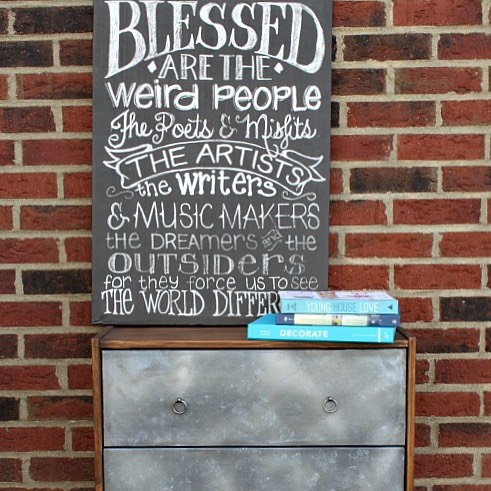 BLESSED
ARE THE
weird PEOPLE
The Poets & Misfits
THE ARTISTS
the writers
& MUSIC MAKERS
the DREAMERS and the
OUTSIDERS
for they force us to see
THE WORLD DIFFER
YOUNG HOUSE LOVE
DECORATE